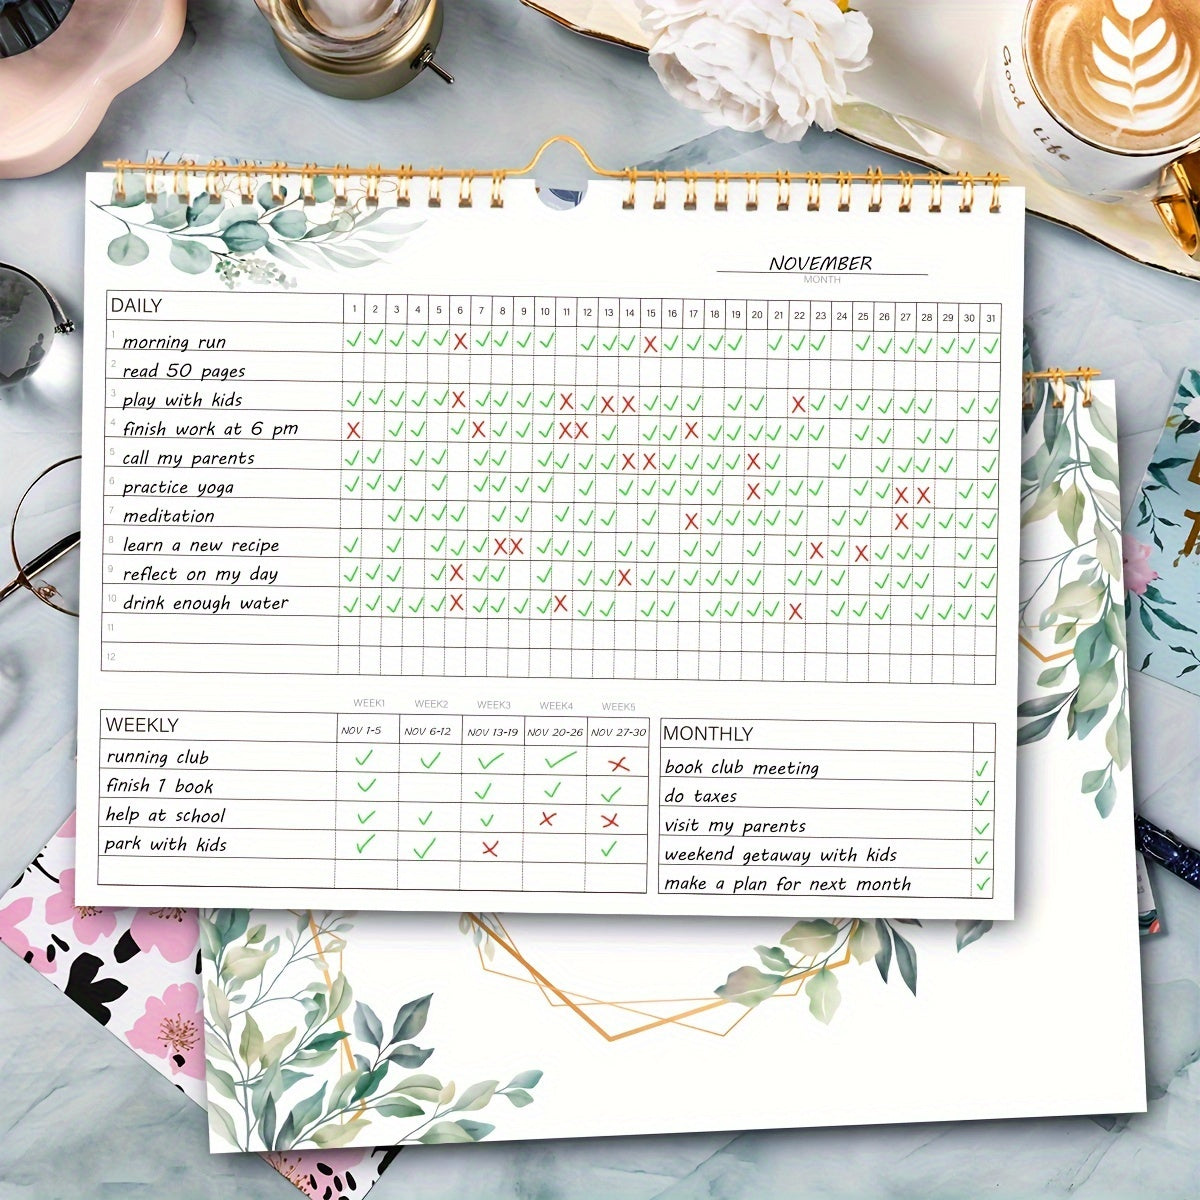 Good life
NOVEMBER
MONTH
DAILY 1 2 3 4 5 6 7 8 9 10 11 12 13 14 15 16 17 18 19 20 21 22 23 24 25 26 27 28 29 30 31
1 morning run ✓ ✓ ✓ ✓ ✓ X ✓ ✓ ✓ ✓ ✓ ✓ ✓ X ✓ ✓ ✓ ✓ ✓ ✓ ✓ ✓ ✓ ✓ ✓ ✓ ✓ ✓
2 read 50 pages
3 play with kids
4 finish work at 6 pm
5 call my parents
6 practice yoga
7 meditation
8 learn a new recipe
9 reflect on my day
10 drink enough water
11
12
WEEK1 WEEK2 WEEK3 WEEK4 WEEK5
WEEKLY NOV 1-5 NOV 6-12 NOV 13-19 NOV 20-26 NOV 27-30
running club ✓ ✓ ✓ ✓ X
finish 1 book ✓ ✓ ✓ ✓
help at school ✓ ✓ ✓ X X
park with kids ✓ ✓ X ✓
MONTHLY
book club meeting ✓
do taxes ✓
visit my parents ✓
weekend getaway with kids ✓
make a plan for next month ✓